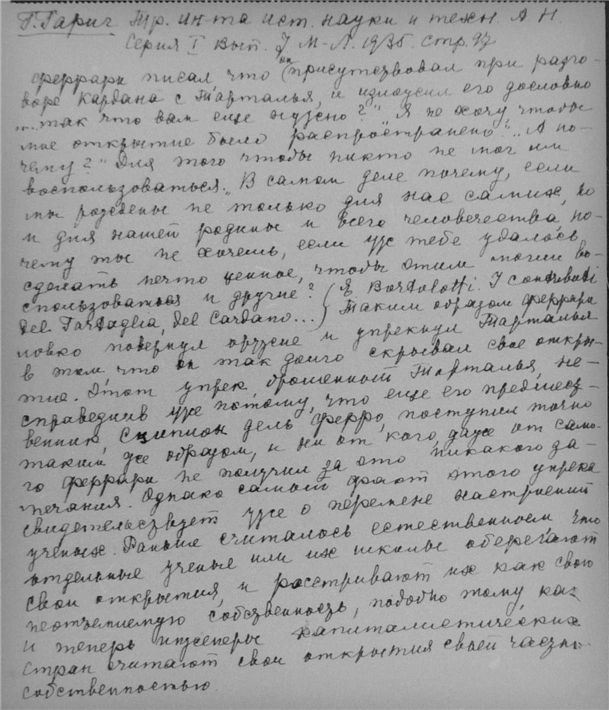 Г. Гариг Тр. Ин-та ист. науки и техн. А Н.
Серия I вып. 7 М-Л. 1935. стр. 97
Феррари писал что он присутствовал при разго-
воре Кардана с Тарталья, и изложил его дословно
"... так что вам еще нужно?" "Я не хочу чтобы
мое открытие было распространено". "А по-
чему?" "Для того чтобы никто не мог им
воспользоваться". В самом деле почему, если
мы рождены не только для нас самих, но
и для нашей родины и всего человечества по-
чему ты не хочешь, если уж тебе удалось
сделать нечто ценное, чтобы этим могли во-
спользоваться и другие? (E Bortolotti. I contributi
del Tartaglia, del Cardano...) Таким образом Феррари
ловко повернул оружие и упрекнул Тарталья
в том что он так долго скрывал свое откры-
тие. Этот упрек, брошенный Тарталья, не-
справедлив уже потому, что еще его предшест-
венник, Сципион дель Ферро, поступил точно
таким же образом, и ни от кого, даже от само-
го Феррари не получил за это никакого за-
мечания. Однако самый факт этого упрека
свидетельствует уже о перемене настроений
ученых. Раньше считалось естественным что
отдельные ученые или их школы оберегают
свои открытия, и расстривают их как свою
неотчемлемую собственность, подобно тому как
и теперь инженеры капиталистических
стран считают свои открытия своей частно
собственностью